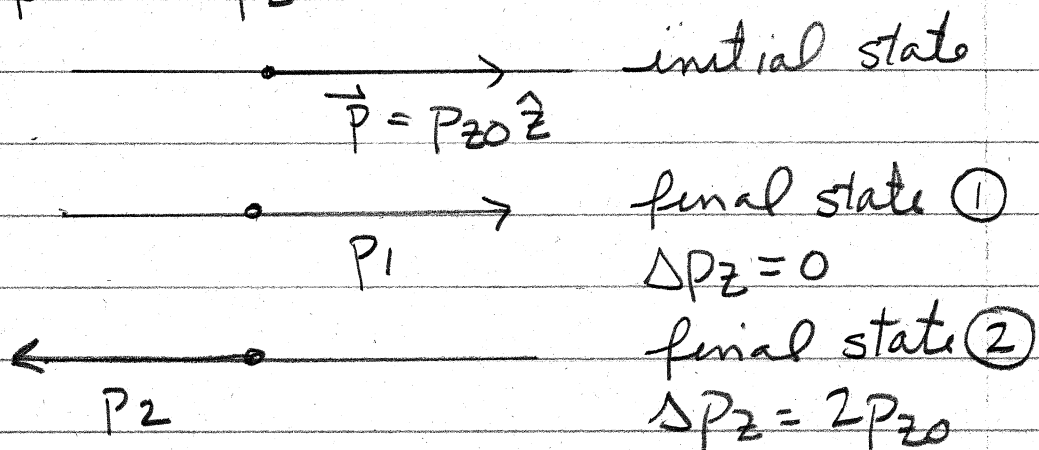 initial state
p⃗ = p_{z0} ẑ
final state ①
p1
Δp_z = 0
final state ②
p2
Δp_z = 2p_{z0}